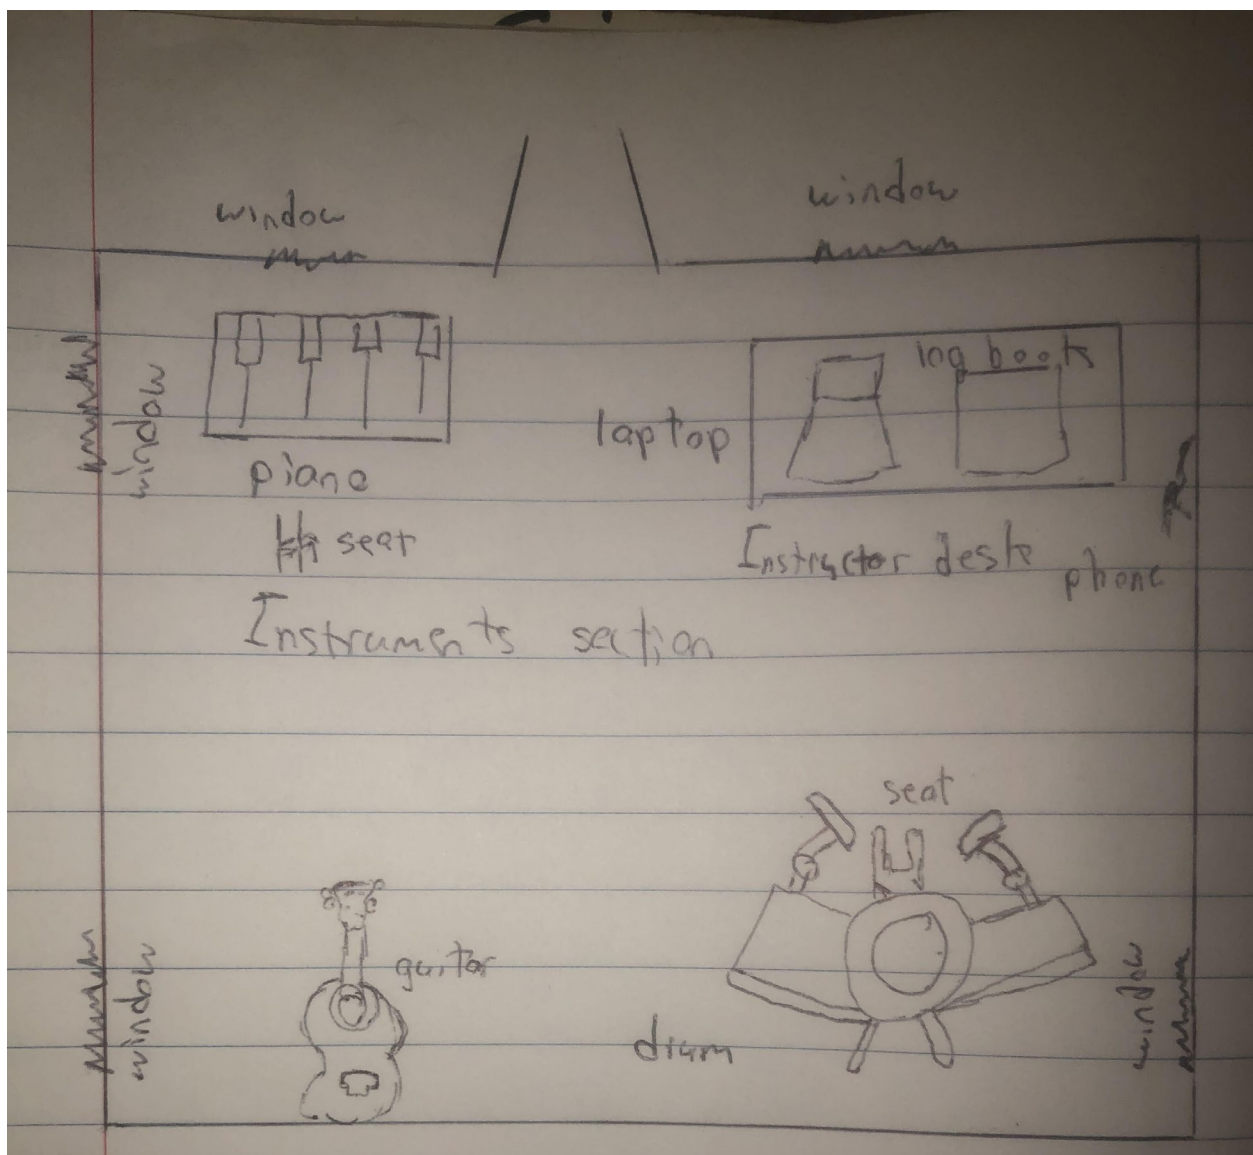 window
window
window
log book
laptop
piano
seat
Instructor desk
phone
Instruments section
seat
guitar
window
window
drum